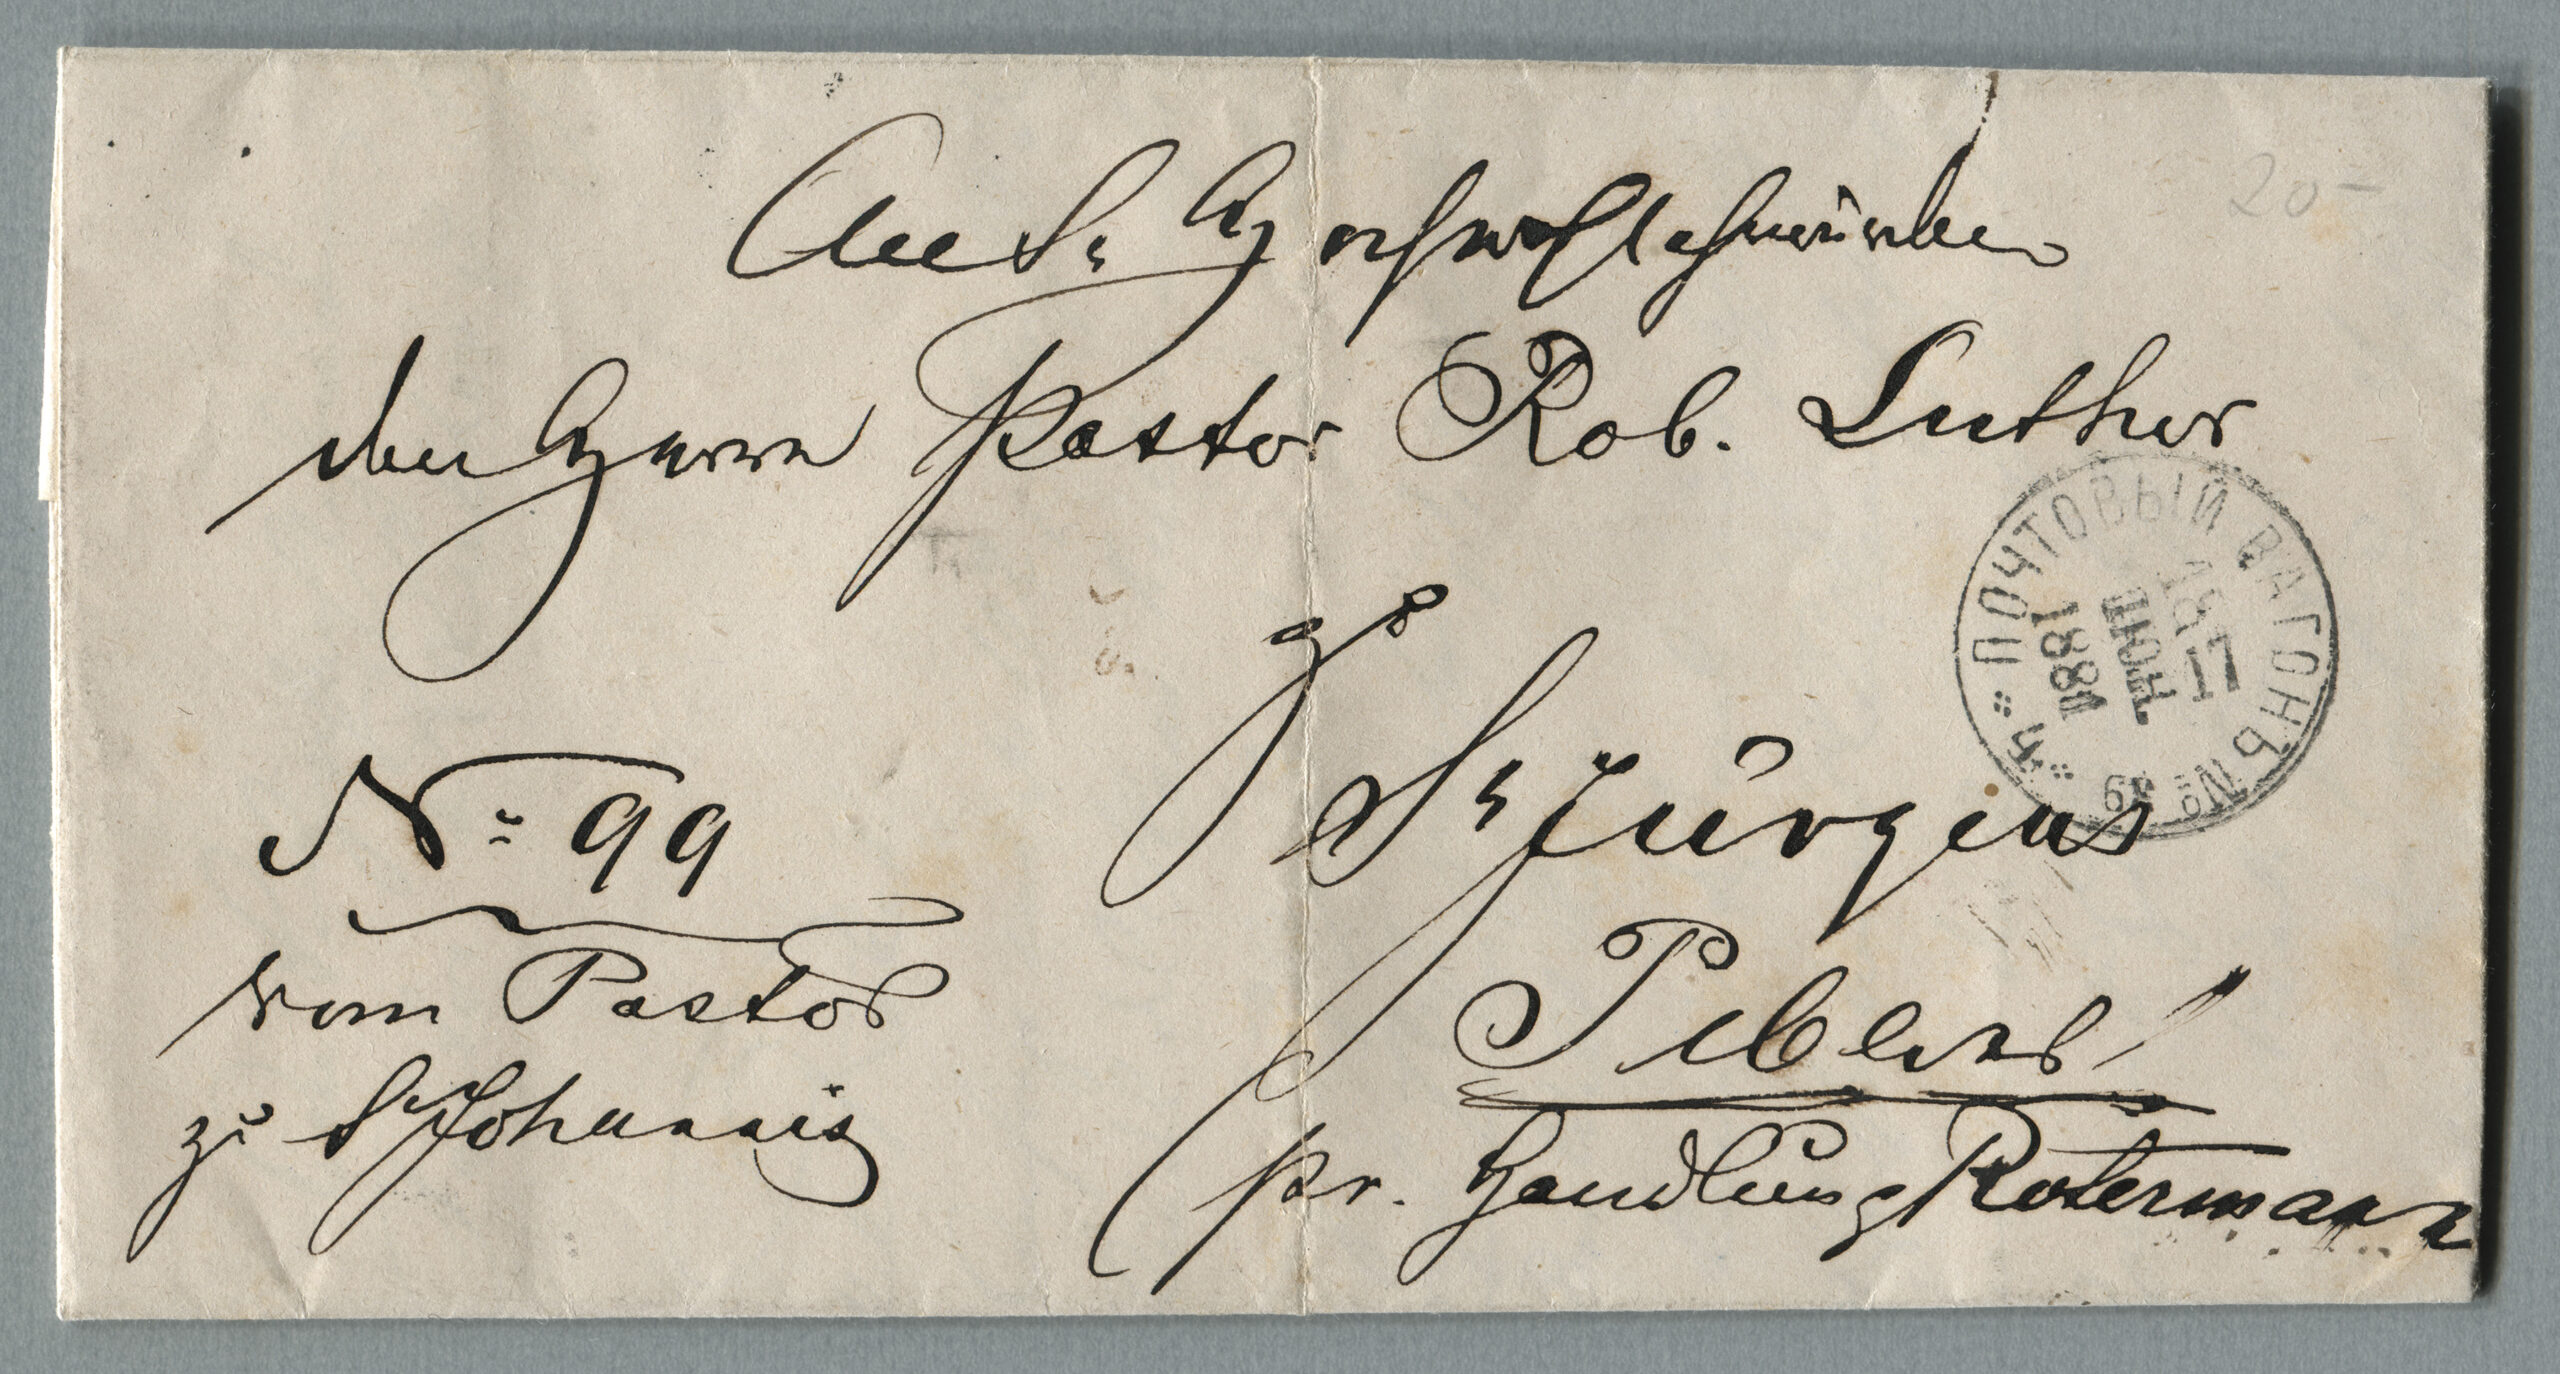 An Sr Hochwohlehrwürden
den Herrn Pastor Rob. Luther
zu
St Jürgens
№ 99
vom Pastor
zu St Johannis
pr. Handlung Rotermann
ПОЧТОВЫЙ ВАГОНЪ №
1881
ІЮЛ.
17
20-